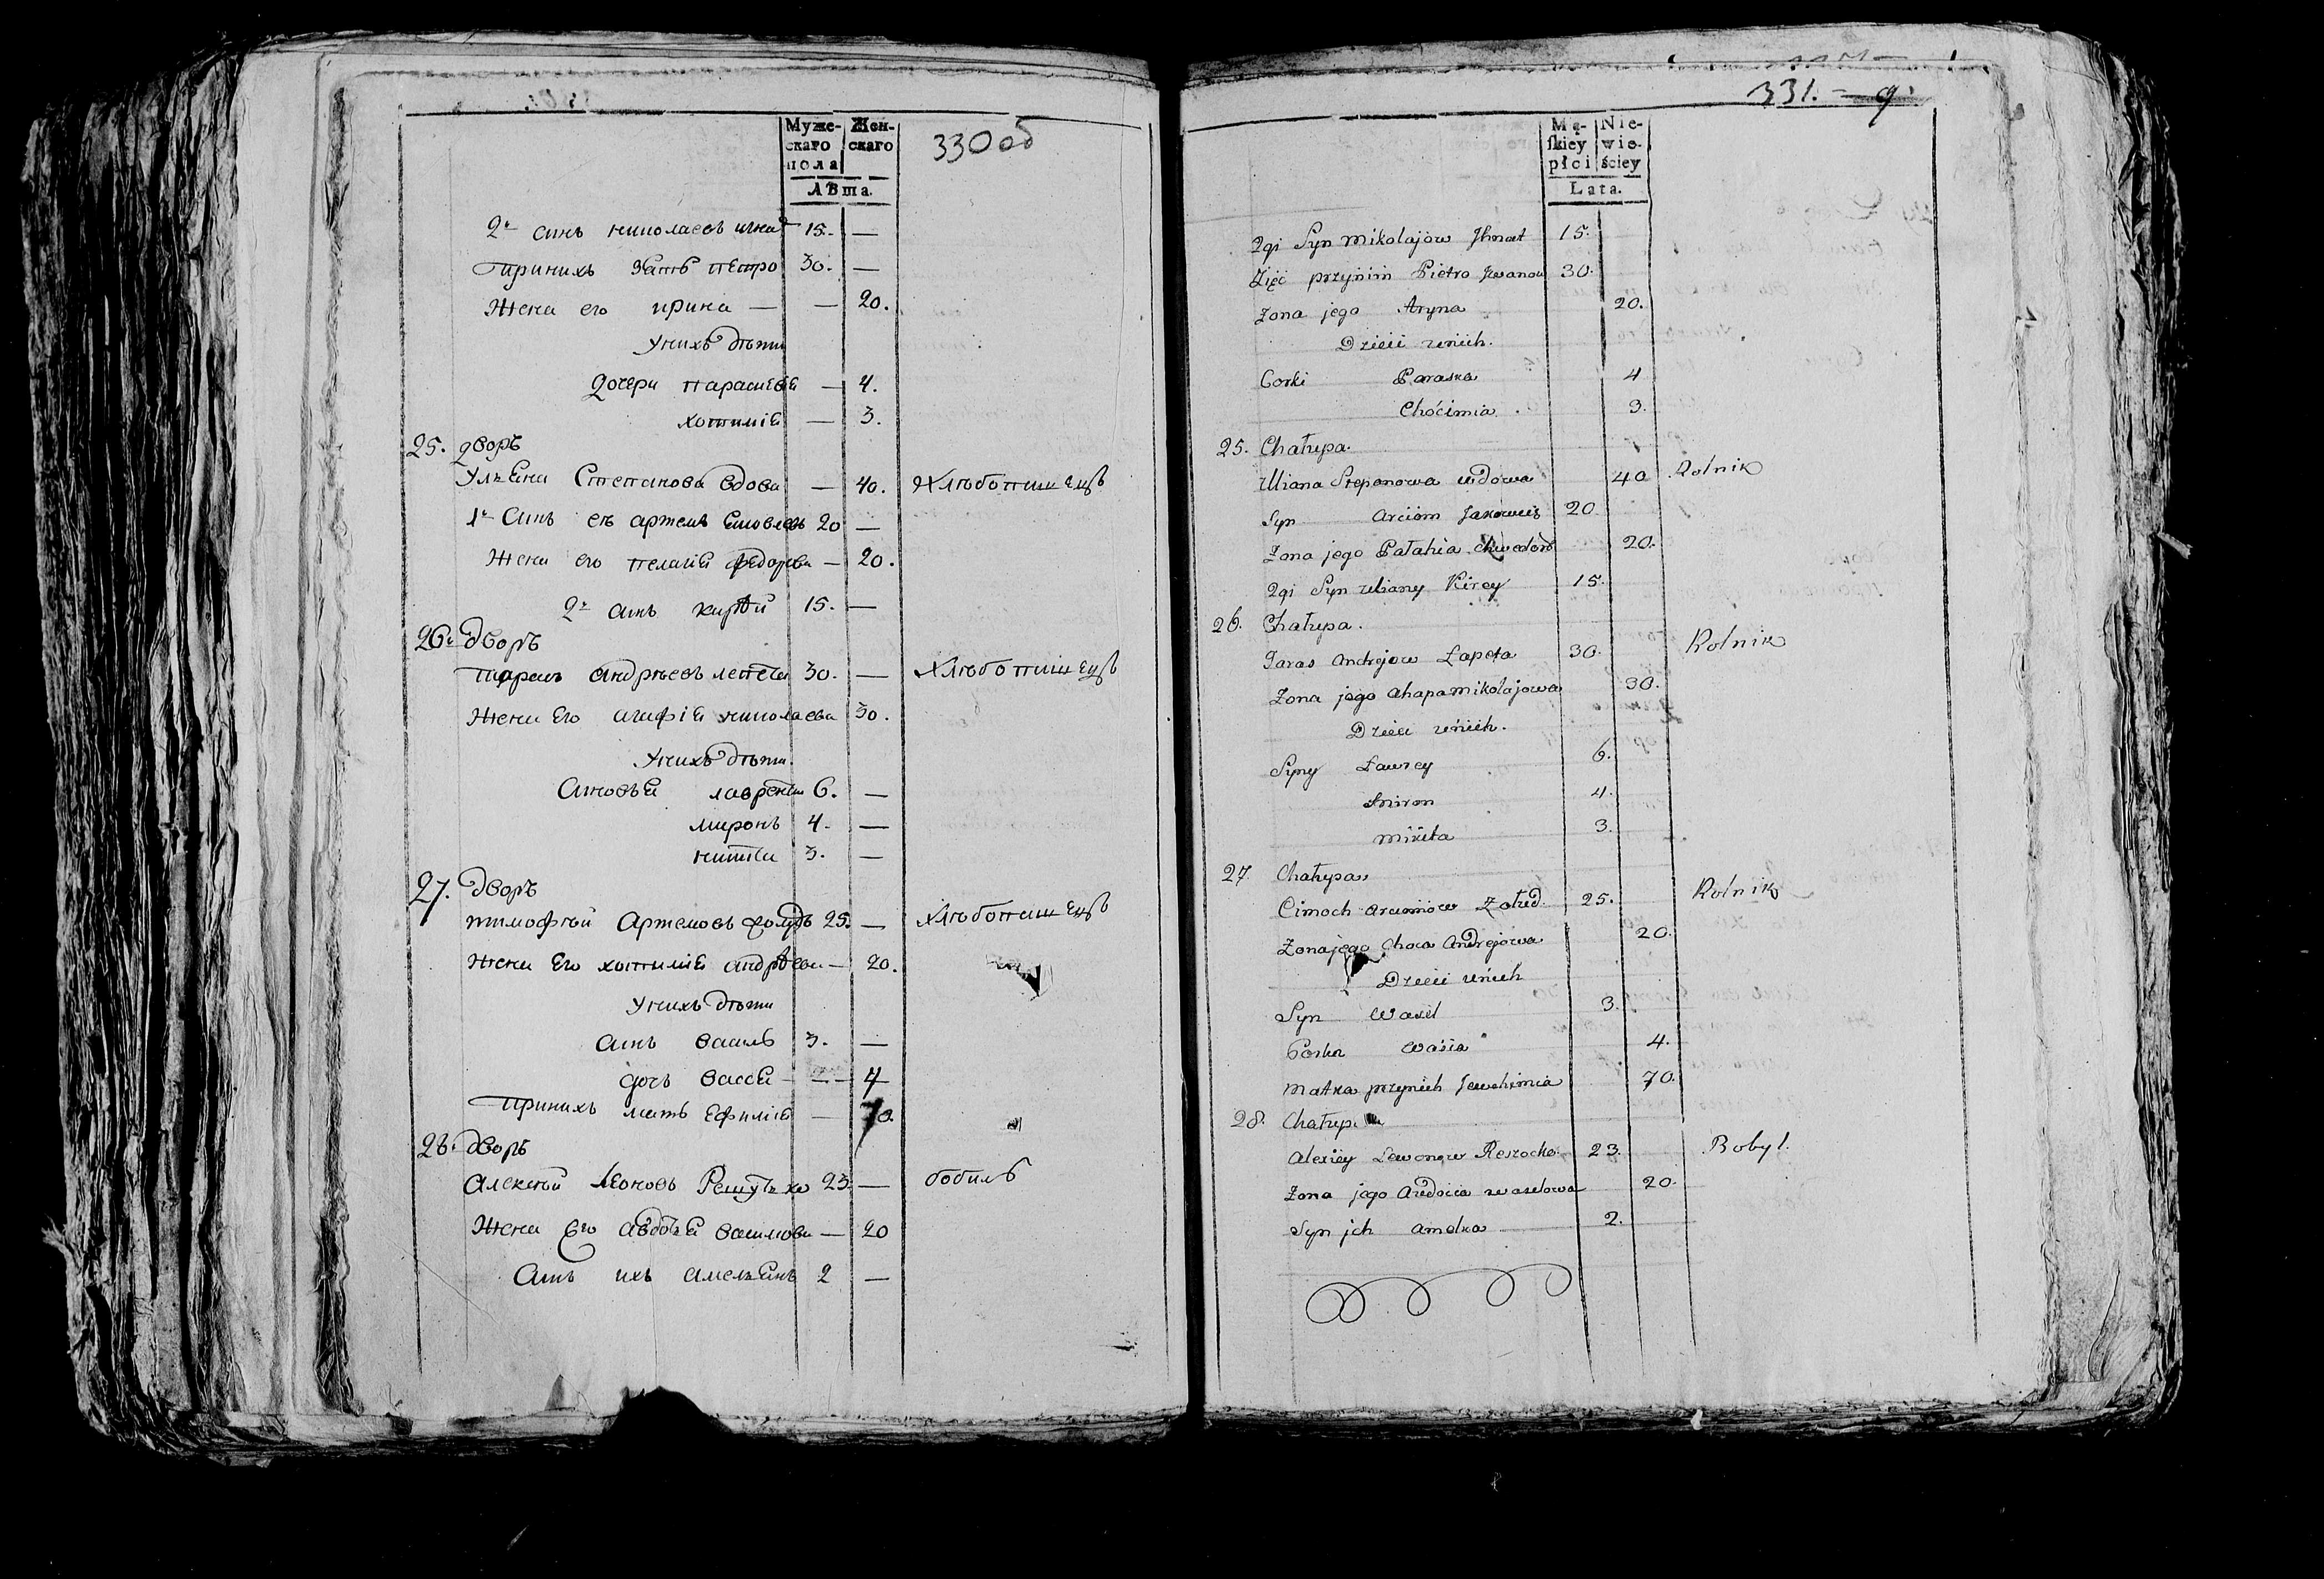 330 об
Муже- Жен-
скаго скаго
пола
лѣта.
2й синъ николаевъ игнат 15. —
принихъ зять петро 30. —
Жена его ирина — — 20.
Унихъ дѣти
дочери параскевія — 4.
хотимія — 3.
25. дворъ
Ульяна Степанова вдова — 40. Хлѣбопашецъ
1й Синъ еѣ артемъ Яковлевъ 20 —
Жена его пелагія федорова — 20.
2й синъ кирѣй 15. —
26. дворъ
тарасъ андрѣевъ лепета 30. — Хлѣбопашецъ
Жена Его агафія николаева 30.
Унихъ дѣти.
Синовья лаврентій 6. —
миронъ 4. —
никита 3. —
27. дворъ
тимофѣй Артемовъ 25. — Хлѣбопашецъ
Жена Его хотимія андрѣева — 20.
Унихъ дѣти
синъ василь 3. —
дочь васса — — 4
принихъ мать Ефимія — 70.
28. дворъ
Алексѣй Леоновъ 23. — бобиль
Жена Его авдотья василюва — 20
Синъ ихъ амельянъ 2 —
331. — 9.
Mę- Nie-
ſkiey wie-
płci ściey
Lata.
2gi Syn Mikołajów Jhnat 15.
Zięć przynim Pietro Jwanow 30.
Żona jego Aryna 20.
Dzieci unich.
Corki Paraska 4
Choćimia 3.
25. Chałupa.
Uliana Stepanowa wdowa 40 Rolnik
Syn Arciom Jakowleẃ 20
Żona jego Pałahia Chwedoro 20.
2gi Syn Uliany Kirey 15.
26. Chałupa.
Taras Andrejow Łapeta 30. Rolnik
Żona jego Ahapa Mikołajowa 30.
Dzieci unich.
Syny Ławrey 6.
Miron 4.
Mikita 3.
27. Chałupa
Cimoch Arciomiow Żołud 25. Rolnik
Żona jego Chocia Andrejowa 20.
Dzieci unich
Syn Wasil 3.
Corka Wasia 4.
Matka przynich Jewchimia 70.
28. Chałupa
Alexiey Lewonow 23. Bobyl.
Żona jego Awdocia Wasilowa 20.
Syn jch Amelka 2.